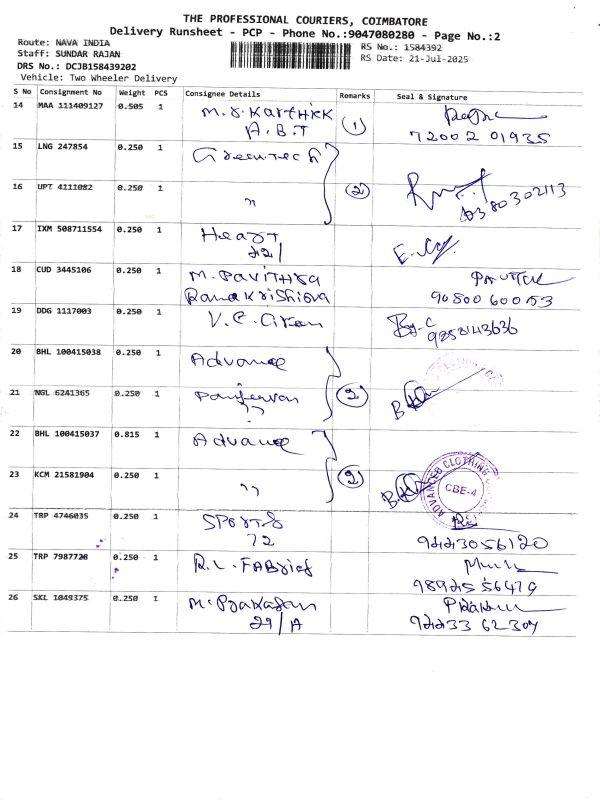 THE PROFESSIONAL COURIERS, COIMBATORE
Delivery Runsheet - PCP - Phone No.:9047080280 - Page No.:2
Route: NAVA INDIA
Staff: SUNDAR RAJAN
DRS No.: DCJB158439202
Vehicle: Two Wheeler Delivery
RS No.: 1584392
RS Date: 21-Jul-2025
S No Consignment No Weight PCS Consignee Details Remarks Seal & Signature
14 MAA 111409127 0.505 1 M.S. Karthick
A.B.T 1
72002 01935
15 LNG 247854 0.250 1 Greentech
16 UPT 4111082 0.250 1 " 2
17 IXM 508711554 0.250 1 Heart
22/
18 CUD 3445106 0.250 1 M. Pavithra
Ramakrishna
90800 60053
19 DDG 1117003 0.250 1 V.C.
20 BHL 100415038 0.250 1 Advance
21 NGL 6241365 0.250 1 2
22 BHL 100415037 0.815 1 Advance
23 KCM 21581904 0.250 1 " 2
ADVANCED CLOTHING
CBE-4
24 TRP 4746035 0.250 1 Sports
72
25 TRP 7987728 0.250 1 R.L. Fabrics
26 SKL 1049375 0.250 1 M. Prakasan
29/A